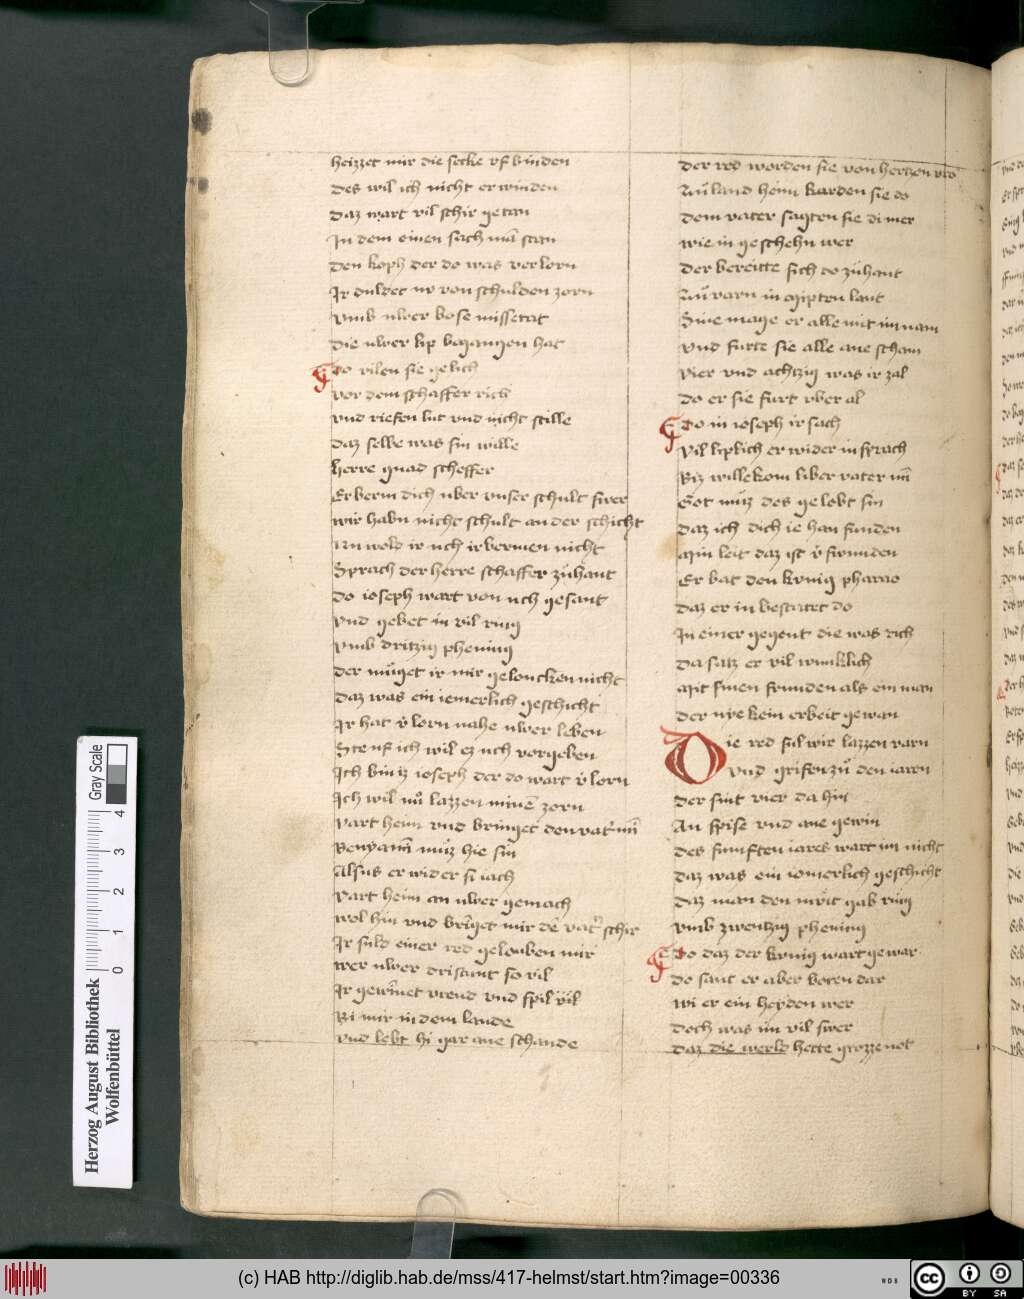 heizzet mir die secke vf binden
Des wil ich nicht erwinden
Daz wart vil schir getan
In dem einen sach mā stan
Den koph der do was verlorn
Ir duldet nv von schulden zorn
vmb uwer bose missetat
Die uwer lip begangen hat
Do vilen sie gelich
vor dem schaffer rich
vnd riefen lut vnd nicht stille
Daz selbe was sin wille
herre quad scheffer
Erberm dich uber vnser schult swer
wir habn nicht schult an der schicht
Nu wold ir uch irbermen nicht
Sprach der herre schaffer zuhant
do ioseph wart von uch gesant
vnd gebet in vil ring
vmb dritzig phening
der muget ir mir gelouckēn nicht
daz was ein iemerlich geschicht
Ir hat v̄lorn nahe uwer leben
Ste uf ich wil ez uch vorgeben
Ich bin iz ioseph der do wart v̄lorn
Ich wil nu lazzen minē zorn
vart heim vnd bringet den vat' min
Benyamī muz hie sin
Alsus er wider si iach
vart heim an uwer gemach
wol hin vnd brīget mir dē vat'r schir
Ir suld einer red gelouben mir
wer uwer dristunt so vil
Ir gewīnet vreud vnd spil vil
Bi mir in dem lande
vnd lebt hi gar ane schande
Der red worden sie von hertzen vro
Zu land heim karden sie do
Dem vater sagten sie di mer
wie in geschehn wer
Der bereitte sich do zuhant
Zu varn in egipten lant
Sine mage er alle mit im nam
vnd furte sie alle ane scham
vier vnd achtzig was ir zal
do er sie furt vber al
Do in ioseph ir sach
vil liplich er wider in sprach
Biz willekom liber vater mī
Got muz des gelobt sin
daz ich dich ie han funden
Min leit daz ist v̄swunden
Er bat den kvnig pharao
daz er in bestatet do
In einer gegent die was rich
Da satz er vil wunklich
Mit sinen frunden als ein man
der nye kein erbeit gewan
Die red sul wir lazzen varn
vnd grifen zu den iaren
der sint vier da hin
An spise vnd ane gewin
des funften iares wart im nicht
daz was ein iomerlich geschicht
daz man den mvt gab ring
vmb zwentzig phening
Do daz der kvnig wart gewar
do sant er aber boten dar
wi er ein heyden wer
doch was im vil swer
daz die werld hette grozze not
Herzog August Bibliothek
Wolfenbüttel
0 1 2 3 4
Gray Scale
(c) HAB http://diglib.hab.de/mss/417-helmst/start.htm?image=00336
WDB
cc BY SA